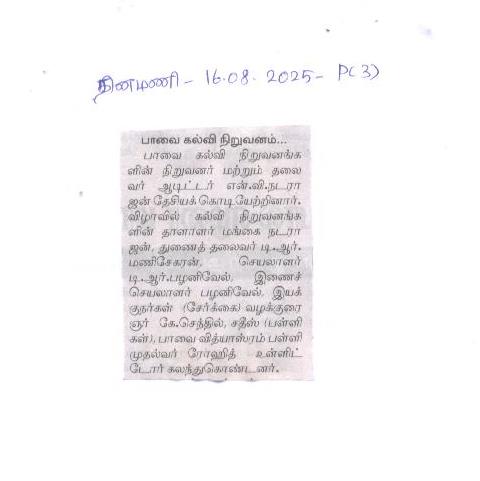 தினமணி - 16.08.2025 - P(3)
பாவை கல்வி நிறுவனம்...
பாவை கல்வி நிறுவனங்க
ளின் நிறுவனர் மற்றும் தலை
வர் ஆடிட்டர் என்.வி.நடரா
ஜன் தேசியக் கொடியேற்றினார்.
விழாவில் கல்வி நிறுவனங்க
ளின் தாளாளர் மங்கை நடரா
ஜன், துணைத் தலைவர் டி.ஆர்.
மணிசேகரன், செயலாளர்
டி.ஆர்.பழனிவேல், இணைச்
செயலாளர் பழனிவேல், இயக்
குநர்கள் (சேர்க்கை) வழக்குரை
ஞர் கே.செந்தில், சதீஸ் (பள்ளி
கள்), பாவை வித்யாஸ்ரம் பள்ளி
முதல்வர் ரோஹித் உள்ளிட்
டோர் கலந்துகொண்டனர்.